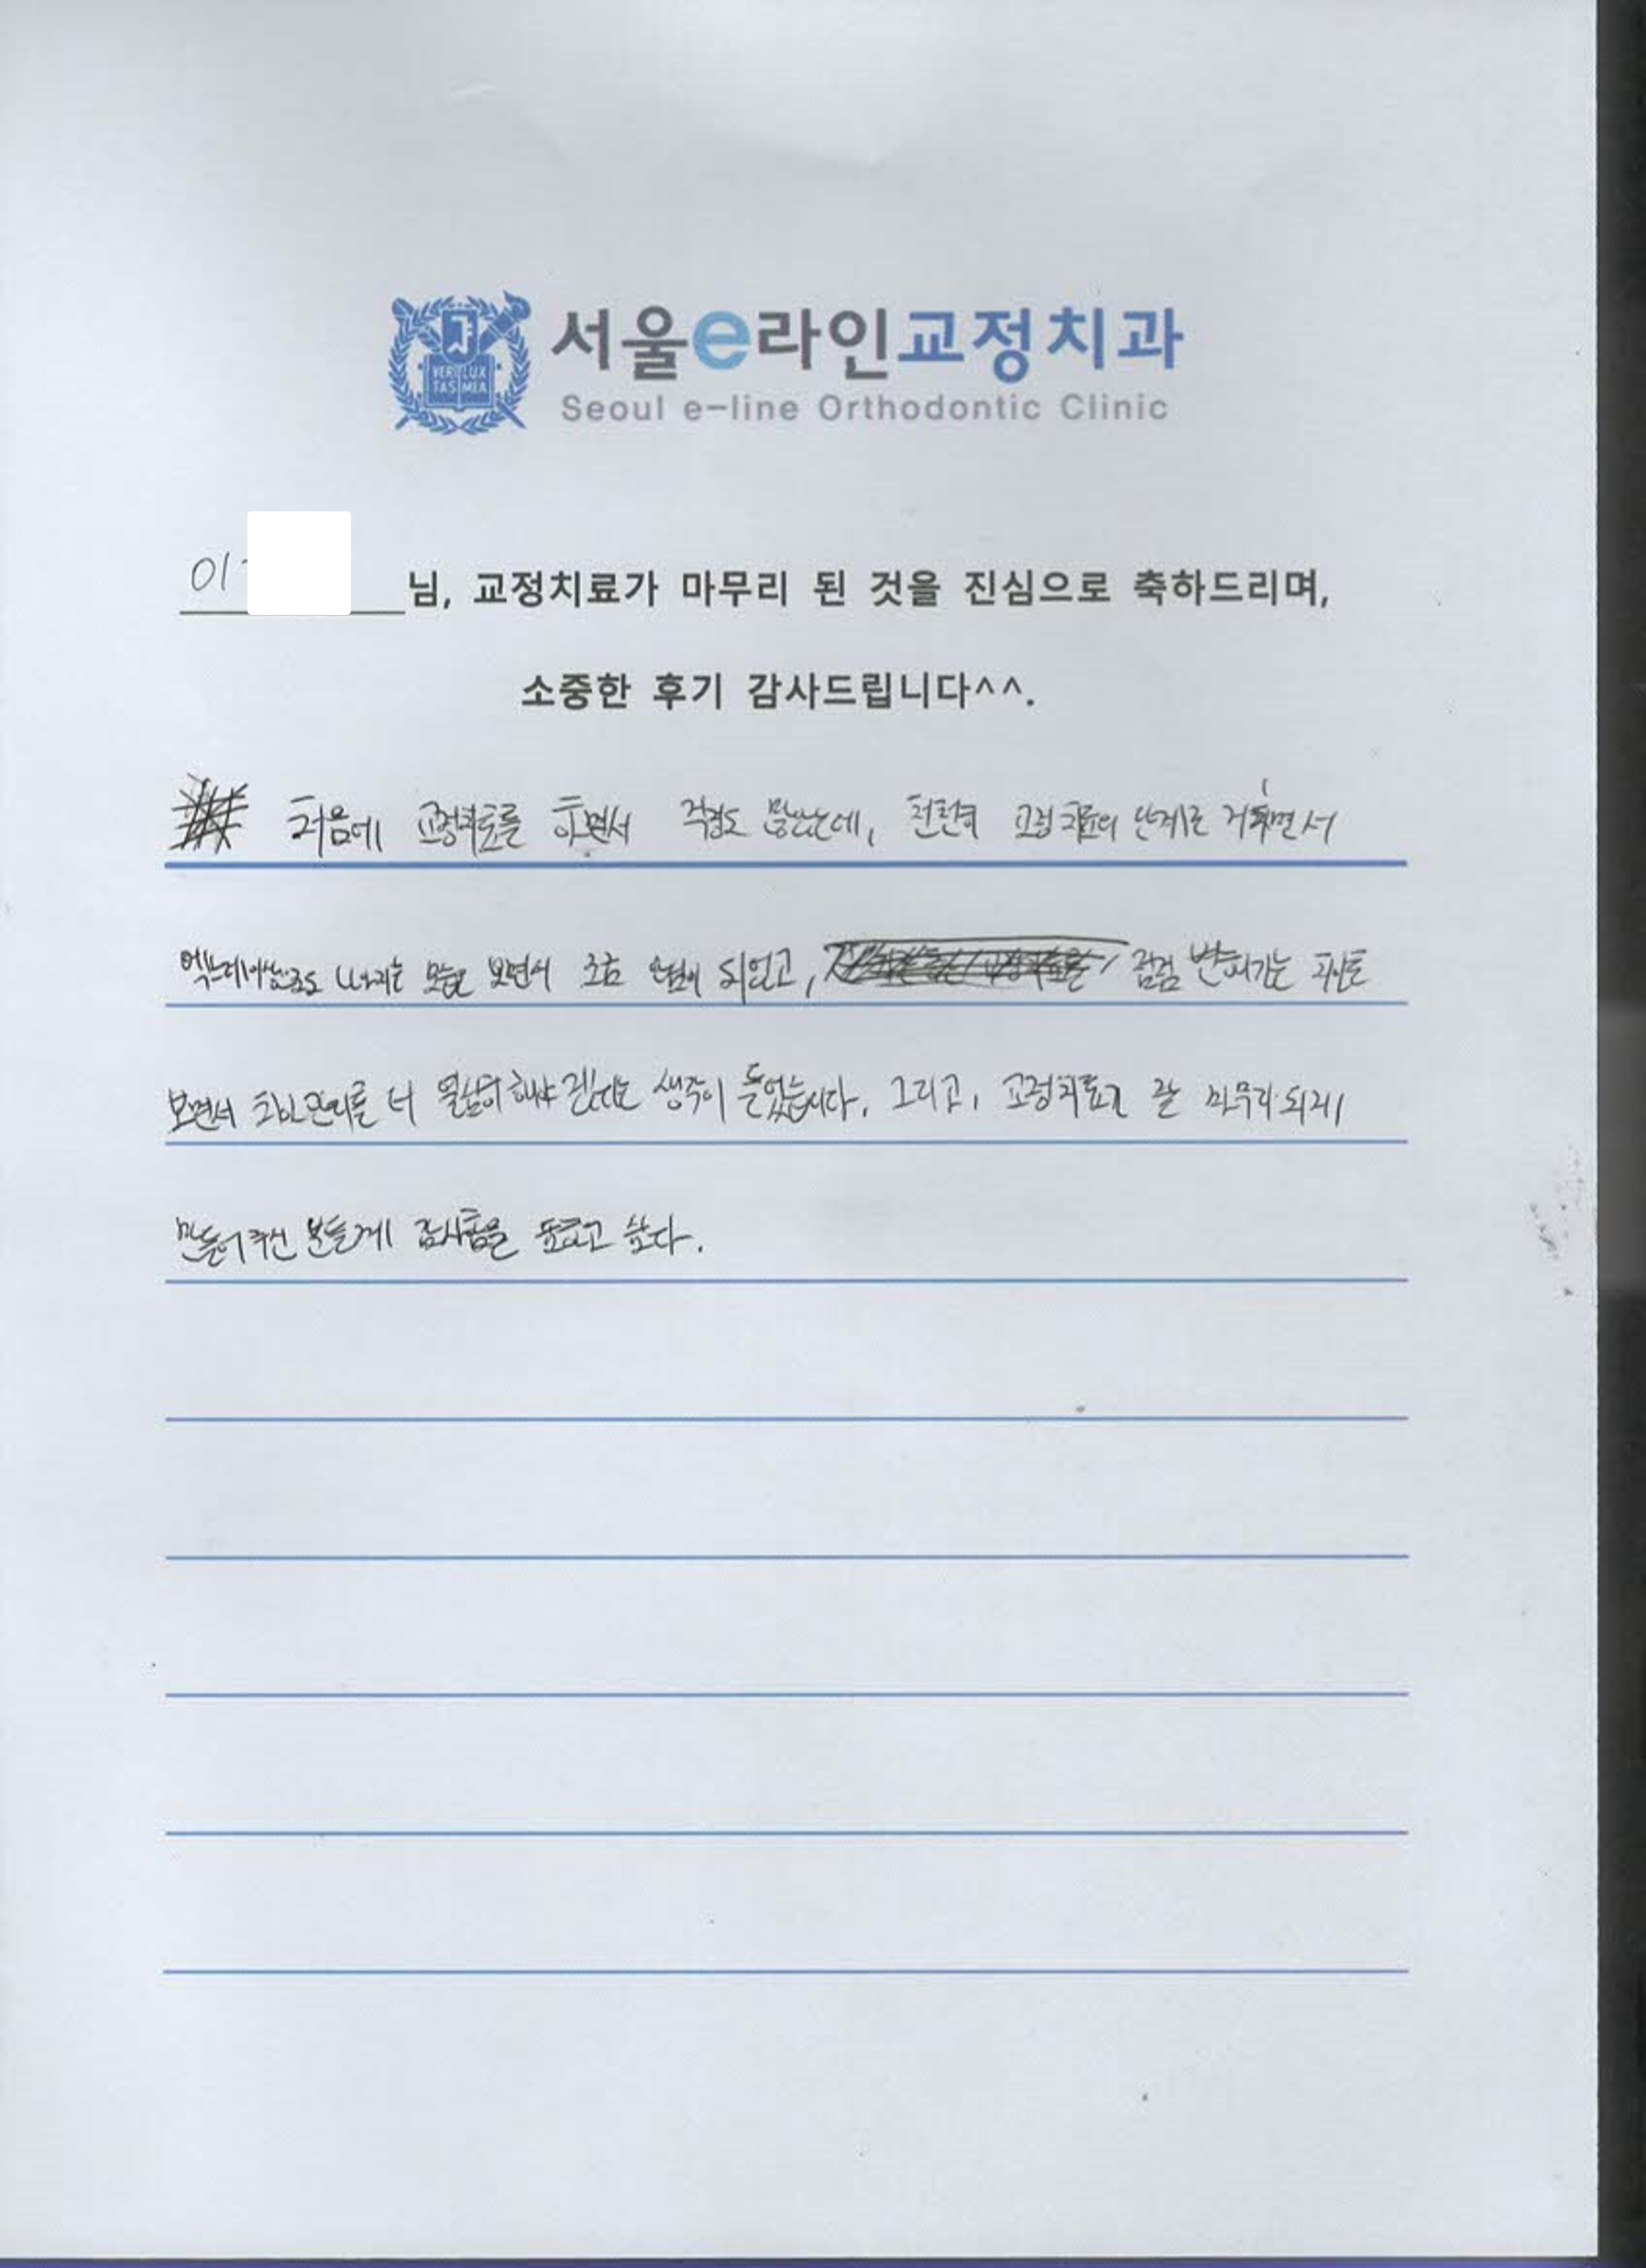 VERI LUX
TAS MEA
서울e라인교정치과
Seoul e-line Orthodontic Clinic
이
님, 교정치료가 마무리 된 것을 진심으로 축하드리며,
소중한 후기 감사드립니다^^.
처음에 교정치료를 하면서 걱정도 많았는데, 천천히 교정치료의 단계를 거치면서
엑스레이상으로도 나아지는 모습을 보면서 조금 안심이 되었고, 점점 변해가는 치아를
보면서 치아관리를 더 열심히 해야 겠다는 생각이 들었습니다. 그리고, 교정치료가 잘 마무리 되게
만들어 주신 분들게 감사함을 표하고 싶다.